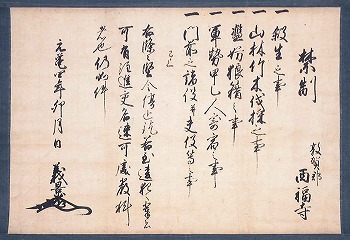 禁制
敦賀郡
西福寺
一殺生之事
一山林竹木伐採之事
一濫妨狼藉之事
一軍勢甲乙人寄宿之事
一門前之諸役并夫役等之事
已上
右條々堅令停止訖若至違犯之輩者
可有注進交名速可處嚴科
者也仍如件
元亀四年卯月日 義景